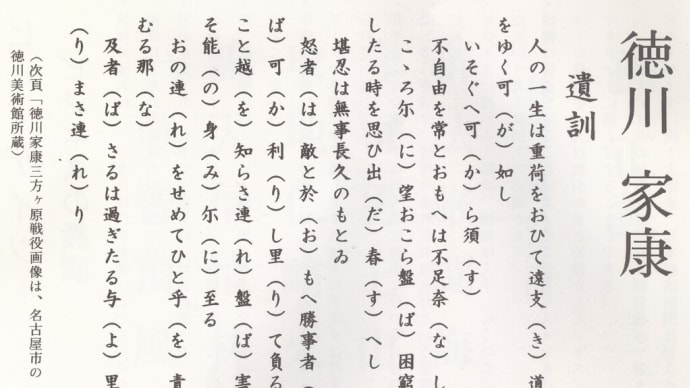 徳川 家康
遺訓
人の一生は重荷をおひて遠支（き）道
をゆく可（が）如し
いそぐへ可（か）ら須（す）
不自由を常とおもへは不足奈（な）し
こゝろ尓（に）望おこら盤（ば）困窮
したる時を思ひ出（だ）春（す）へし
堪忍は無事長久のもとゐ
怒者（は）敵と於（お）もへ勝事者（
ば）可（か）利（り）し里（り）て負る
こと越（を）知らさ連（れ）盤（ば）害
そ能（の）身（み）尓（に）至る
おの連（れ）をせめてひと乎（を）責
むる那（な）
及者（ば）さるは過ぎたる与（よ）里
（り）まさ連（れ）り
（次頁「徳川家康三方ヶ原戦役画像は、名古屋市の
徳川美術館所蔵）